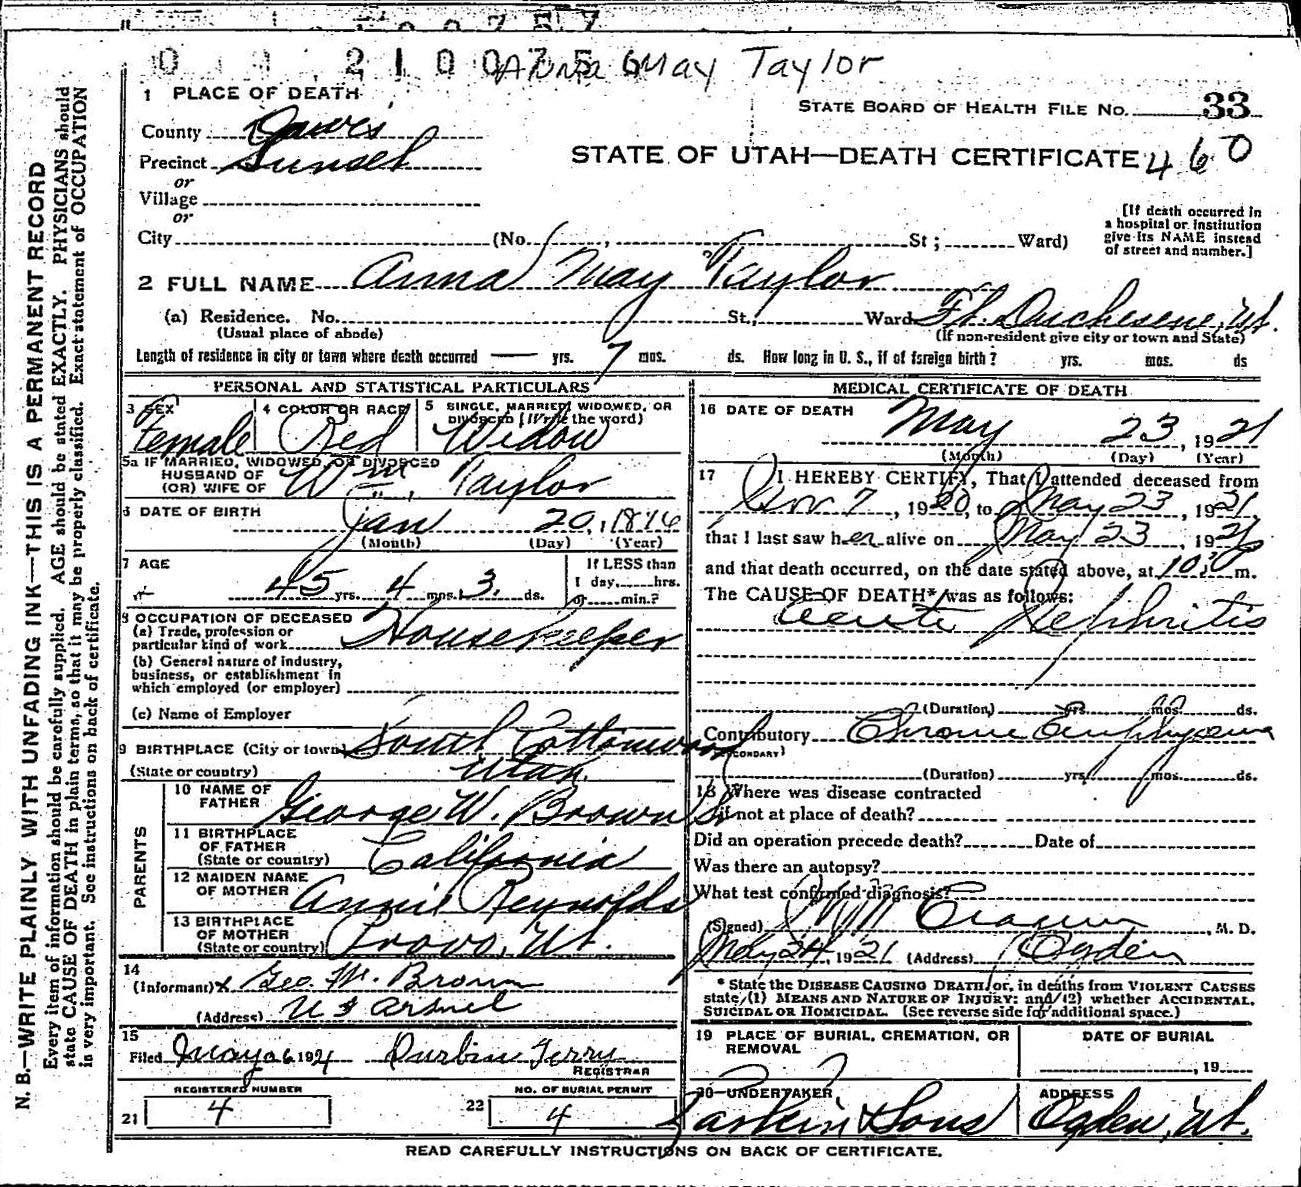 0 210075 6 Anna May Taylor
1 PLACE OF DEATH
STATE BOARD OF HEALTH FILE No. 33
County Davis
Precinct Sunset
STATE OF UTAH—DEATH CERTIFICATE 460
or
Village
or
City (No. , St ; Ward)
[If death occurred in
a hospital or institution
give its NAME instead
of street and number.]
2 FULL NAME Anna May Taylor
(a) Residence. No. St., Ward Ft. Duchesene, Ut.
(Usual place of abode) (If non-resident give city or town and State)
Length of residence in city or town where death occurred — yrs. 7 mos. ds. How long in U. S., if of foreign birth? yrs. mos. ds
PERSONAL AND STATISTICAL PARTICULARS
3 SEX 4 COLOR OR RACE 5 SINGLE, MARRIED, WIDOWED, OR
DIVORCED (Write the word)
Female Red Widow
5a IF MARRIED, WIDOWED, OR DIVORCED
HUSBAND OF
(OR) WIFE OF Wm. Taylor
6 DATE OF BIRTH Jan 20, 1876
(Month) (Day) (Year)
7 AGE If LESS than
45 yrs. 4 mos. 3. ds. 1 day, hrs.
or min.?
8 OCCUPATION OF DECEASED
(a) Trade, profession or
particular kind of work Housekeeper
(b) General nature of industry,
business, or establishment in
which employed (or employer)
(c) Name of Employer
9 BIRTHPLACE (City or town) South Cottonwood
(State or country) Utah.
PARENTS
10 NAME OF
FATHER George W. Brown Sr
11 BIRTHPLACE
OF FATHER
(State or country) California
12 MAIDEN NAME
OF MOTHER Annie Reynolds
13 BIRTHPLACE
OF MOTHER
(State or country) Provo, Ut.
14
(Informant) x Geo. W. Brown
(Address) U S Arsnel
15
Filed May 26 1921 Durbin Terry
REGISTRAR
REGISTERED NUMBER NO. OF BURIAL PERMIT
21 4 22 4
MEDICAL CERTIFICATE OF DEATH
16 DATE OF DEATH May 23, 1921
(Month) (Day) (Year)
17 I HEREBY CERTIFY, That I attended deceased from
Nov 7, 1920, to May 23, 1921,
that I last saw her alive on May 23, 1921
and that death occurred, on the date stated above, at m.
The CAUSE OF DEATH* was as follows:
Acute Nephritis
(Duration) yrs. mos. ds.
Contributory Chronic Emphysema
(SECONDARY)
(Duration) yrs. mos. ds.
18 Where was disease contracted
if not at place of death?
Did an operation precede death? Date of
Was there an autopsy?
What test confirmed diagnosis?
(Signed) , M. D.
May 24, 1921 (Address) Ogden
* State the DISEASE CAUSING DEATH, or, in deaths from VIOLENT CAUSES
state (1) MEANS AND NATURE OF INJURY; and (2) whether ACCIDENTAL,
SUICIDAL OR HOMICIDAL. (See reverse side for additional space.)
19 PLACE OF BURIAL, CREMATION, OR
REMOVAL
DATE OF BURIAL
, 19
20 UNDERTAKER ADDRESS
Larkin & Sons Ogden, Ut.
READ CAREFULLY INSTRUCTIONS ON BACK OF CERTIFICATE.
N. B.—WRITE PLAINLY WITH UNFADING INK—THIS IS A PERMANENT RECORD
Every item of information should be carefully supplied. AGE should be stated EXACTLY. PHYSICIANS should
state CAUSE OF DEATH in plain terms, so that it may be properly classified. Exact statement of OCCUPATION
is very important. See instructions on back of certificate.